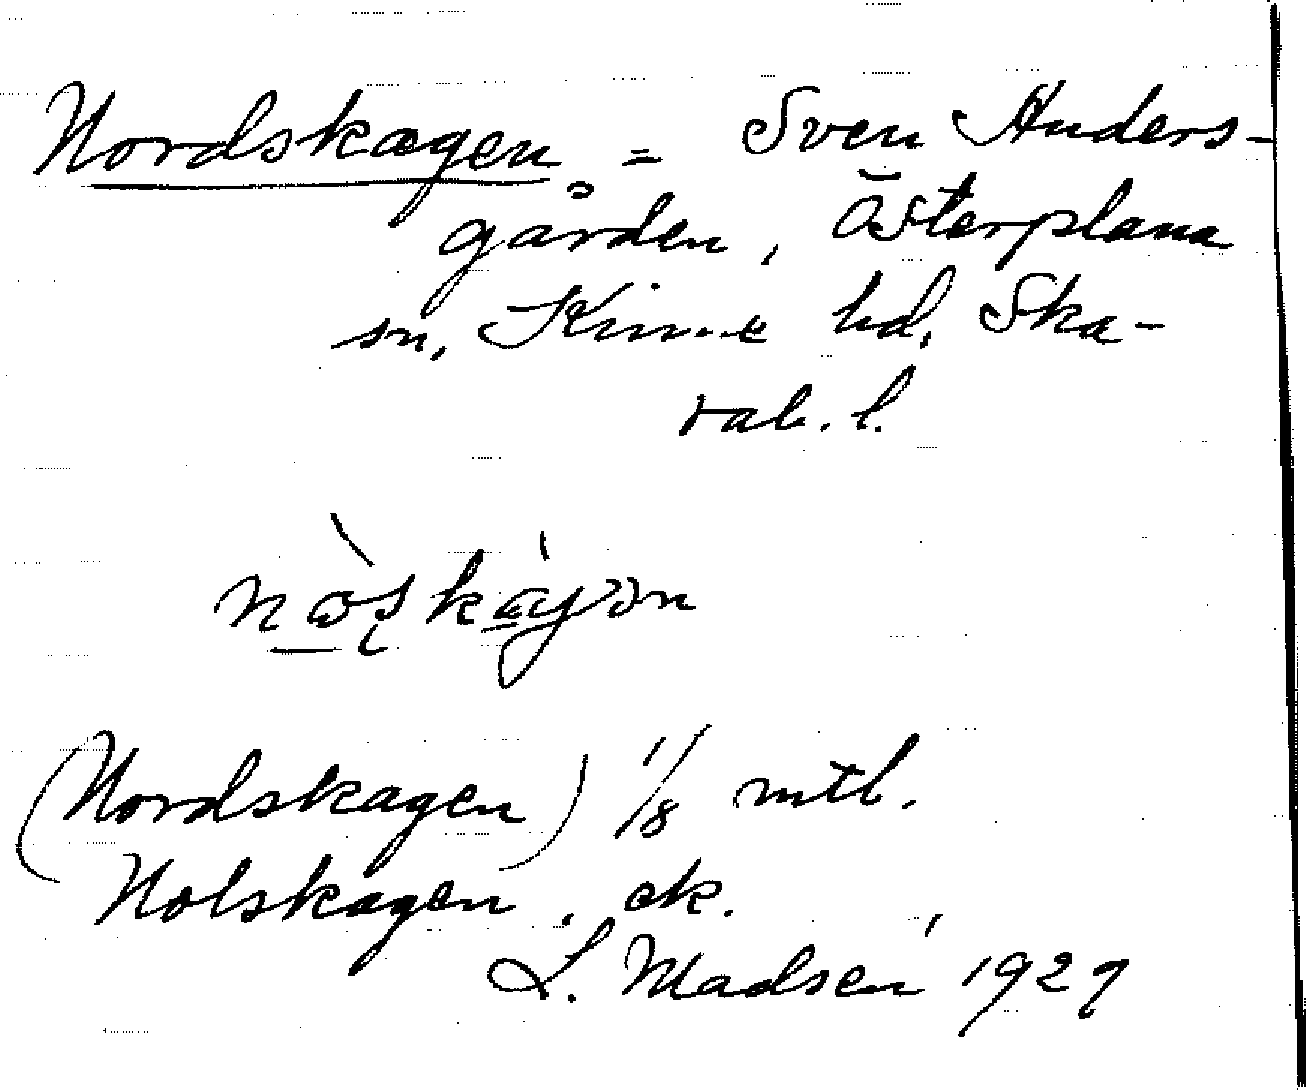 Nordskagen = Sven Anders-
gården, Österplana
sn, Kinne hd, Ska-
rab. l.
(Nordskagen) 1/8 mtl.
Nolskagen. ek.
L. Madsén 1929